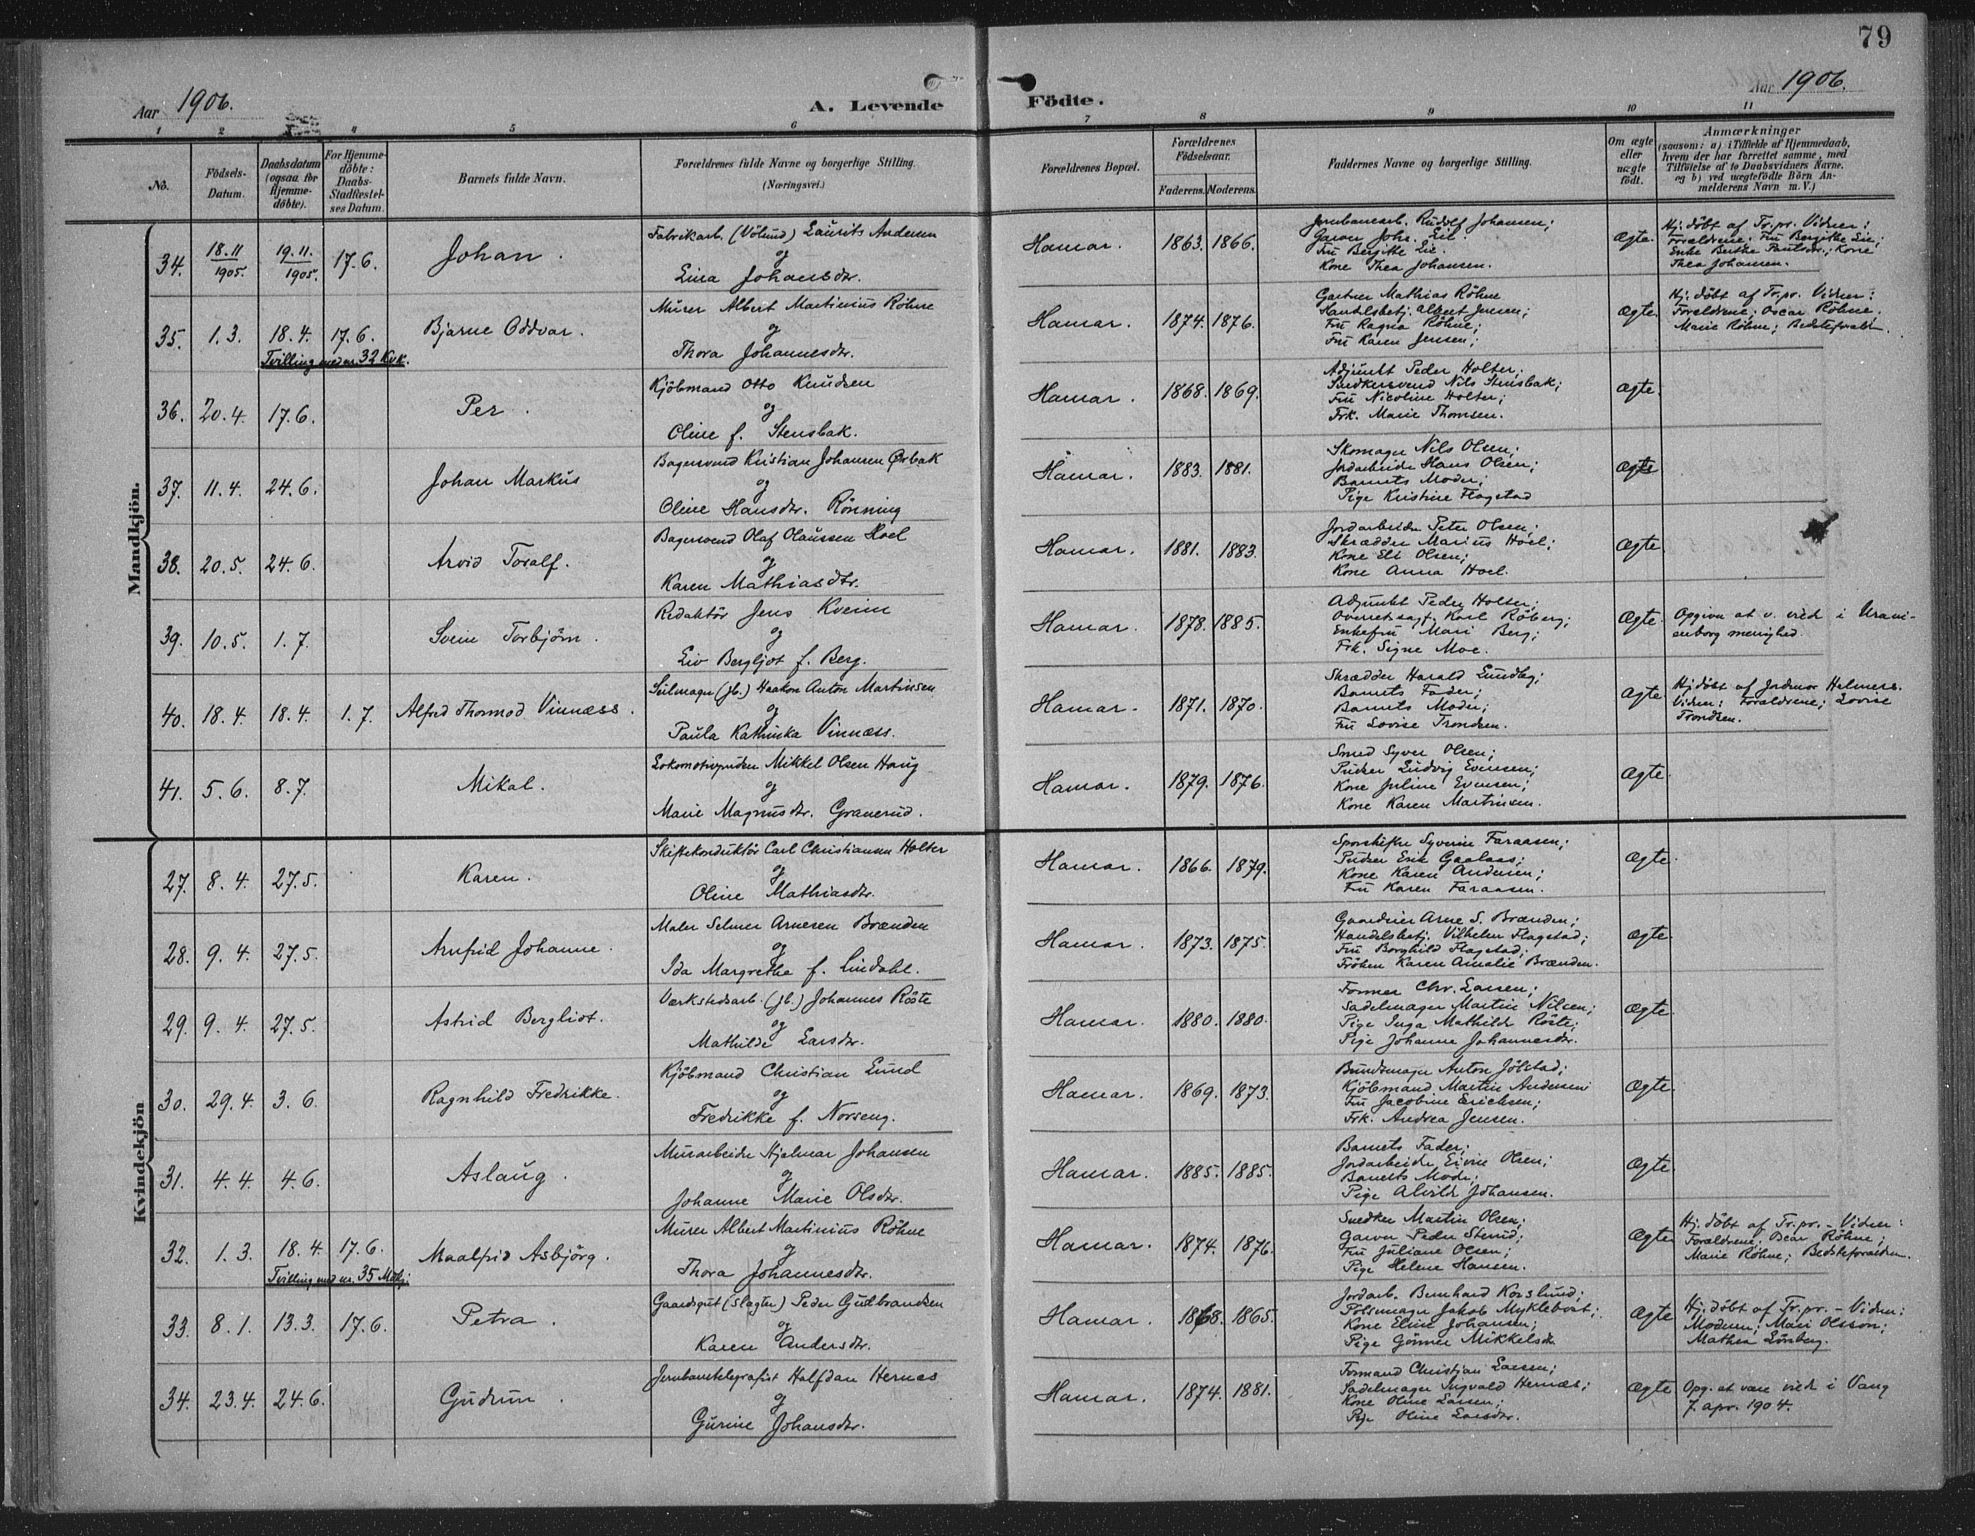 79
Aar 1906.
A. Levende Födte.
Aar 1906.
1 2 4 5 6 7 8 9 10 11
No.
Födsels-Datum.
Daabsdatum (ogsaa for Hjemme-döbte).
For Hjemme-döbte: Daabs-Stadfæstel-ses Datum.
Barnets fulde Navn.
Forældrenes fulde Navne og borgerlige Stilling.
(Næringsvei.)
Forældrenes Bopæl.
Forældrenes Födselsaar.
Faderens. Moderens.
Faddernes Navne og borgerlige Stilling.
Om ægte eller uægte födt.
Anmærkninger
(saasom: a) i Tilfælde af Hjemmedaab, hvem der har forrettet samme, med Tilföielse af to Daabsvidners Navne, og b) ved uægtefödte Börn An-melderens Navn m. V.)
Mandkjön.
34. 18.11 1905. 19.11. 1905. 17.6. Johan.
Fabrikarb. (Völund) Laurits Andersen
og
Lina Johansdtr.
Hamar. 1863. 1866.
Jernbanearb. Rudolf Johansen;
Garver Johs. Lie.
Fru Bergitte Lie.
Kone Thea Johansen.
Ægte.
Hj. döbt af Tr.pr. Vidner:
Forældrene; Fru Bergitte Lie;
Enke Berthe Paulsdr.; Kone
Thea Johansen.
35. 1.3. 18.4. 17.6. Bjarne Oddvar.
Tvilling med nr. 32 Kvk.
Murer Albert Martinius Röhne
og
Thora Johannesdtr.
Hamar. 1874. 1876.
Gartner Mathias Röhne
Handelsbetj. Albert Jensen;
Fru Ragna Röhne;
Fru Karen Jensen;
Ægte.
Hj. döbt af Tr.pr. Vidner:
Forældrene; Oscar Röhne.
Marie Röhne; Bedsteforældr.
36. 20.4. 17.6. Per.
Kjöbmand Otto Knudsen
og
Oline f. Stensbak.
Hamar. 1868. 1869.
Adjunkt Peder Holter;
Snedkersvend Nils Stensbak;
Fru Nicoline Holter;
Frk. Marie Thomsen.
Ægte.
37. 11.4. 24.6. Johan Markus
Bagersvend Kristian Johansen Ørbak
og
Oline Hansdtr. Rönning
Hamar. 1883. 1881.
Skomager Nils Olsen;
Jordarbeider Hans Olsen;
Barnets Moder;
Pige Kristine Flagstad
Ægte
38. 20.5. 24.6. Arvid Toralf.
Bagersvend Olaf Olaussen Hoel
og
Karen Mathiasdtr.
Hamar. 1881. 1883.
Jordarbeider Peter Olsen;
Skrædder Marius Hoel;
Kone Eli Olsen;
Kone Anna Hoel.
Ægte
39. 10.5. 1.7. Svein Torbjörn.
Redaktör Jens Kveim
og
Liv Bergljot f. Berg.
Hamar. 1878. 1885.
Adjunkt Peder Holter;
Overretssagf. Karl Röberg;
Enkefru Mari Berg;
Frk. Signe Moe.
Ægte.
Opgivn at v. vied i Urani-
enborg menighed.
40. 18.4. 18.4. 1.7. Alfred Thormod Vinnæss.
Seilmager (jb.) Haakon Anton Martinsen
og
Paula Kathinka Vinnæss.
Hamar. 1871. 1870.
Skrædder Harald Lundby;
Barnets Fader;
Barnets Moder;
Fru Lovise Trondsen.
Ægte
Hj. döbt af Jordmor Helmers.
Vidner: Forældrene; Lovise
Trondsen.
41. 5.6. 8.7. Mikal.
Lokomotivpudser Mikkel Olsen Haug
og
Marie Magnusdtr. Granerud.
Hamar. 1879. 1876.
Smed Syver Olsen;
Pudser Ludvig Evensen;
Kone Juline Evensen;
Kone Karen Martinsen.
Ægte.
Kvindekjön
27. 8.4. 27.5. Karen.
Skiftekonduktör Carl Christiansen Holter
og
Oline Mathiasdtr.
Hamar. 1866. 1879.
Sporskifter Syverin Faraasen;
Pudser Erik Gaalaas;
Kone Karen Andersen;
Fru Karen Faraasen.
Ægte.
28. 9.4. 27.5. Arnfrid Johanne.
Maler Selmer Arnesen Brænden
og
Ida Margrethe f. Lindahl.
Hamar. 1873. 1875.
Gaardeier Arne S. Brænden;
Handelsbetj. Vilhelm Flagstad;
Fru Borghild Flagstad;
Fröken Karen Amalie Brænden.
Ægte.
29. 9.4. 27.5. Astrid Bergliot.
Værkstedsarb. (jb.) Johannes Röste
og
Mathilde Larsdtr.
Hamar. 1880. 1880.
Former Chr. Larsen;
Sadelmager Martin Nilsen;
Pige Inga Mathilde Röste;
Pige Johanne Johannesdtr.
Ægte.
30. 29.4. 3.6. Ragnhild Fredrikke.
Kjöbmand Christian Lund
og
Fredrikke f. Norseng.
Hamar. 1869. 1873.
Buntmager Anton Jölstad;
Kjöbmand Martin Andersen;
Fru Jacobine Erichsen;
Frk. Andrea Jensen.
Ægte.
31. 4.4. 4.6. Aslaug.
Murarbeider Hjalmar Johansen
og
Johanne Marie Olsdtr.
Hamar. 1885. 1885.
Barnets Fader;
Jordarbeider Eivin Olsen;
Barnets Moder;
Pige Alvilde Johansen.
Ægte.
32. 1.3. 18.4. 17.6. Maalfrid Asbjörg.
Tvilling med nr. 35 Mdkj.
Murer Albert Martinius Röhne
og
Thora Johannesdtr.
Hamar. 1874. 1876.
Snedker Martin Olsen;
Garver Peder Sterud;
Fru Juliane Olsen;
Pige Helene Hansen.
Ægte
Hj. döbt af Tr.pr. – Vidner:
Forældrene; Oscar Röhne;
Marie Röhne; Bedsteforældre.
33. 8.1. 13.3. 17.6. Petra.
Gaardsgut (Slagter) Peder Gudbrandsen
og
Karen Andersdtr.
Hamar. 1868. 1865.
Jordarb. Bernhard Korslund;
Pölsemager Jakob Myklebost;
Kone Eline Johansen;
Pige Gunner Mikkelsdr.
Ægte
Hj. döbt af Tr.pr. – Vidner:
Moderen; Mari Olsson;
Mathea Lönberg.
34. 23.4. 24.6. Gudrun.
Jernbanetelegrafist Halfdan Hernes
og
Gurine Johansdtr.
Hamar. 1874. 1881.
Formand Christian Larsen;
Sadelmager Ingvald Hernæs;
Kone Oline Larsen;
Pige Oline Larsdtr.
Ægte
Opg. at være viet i Vang
7. apr. 1904.